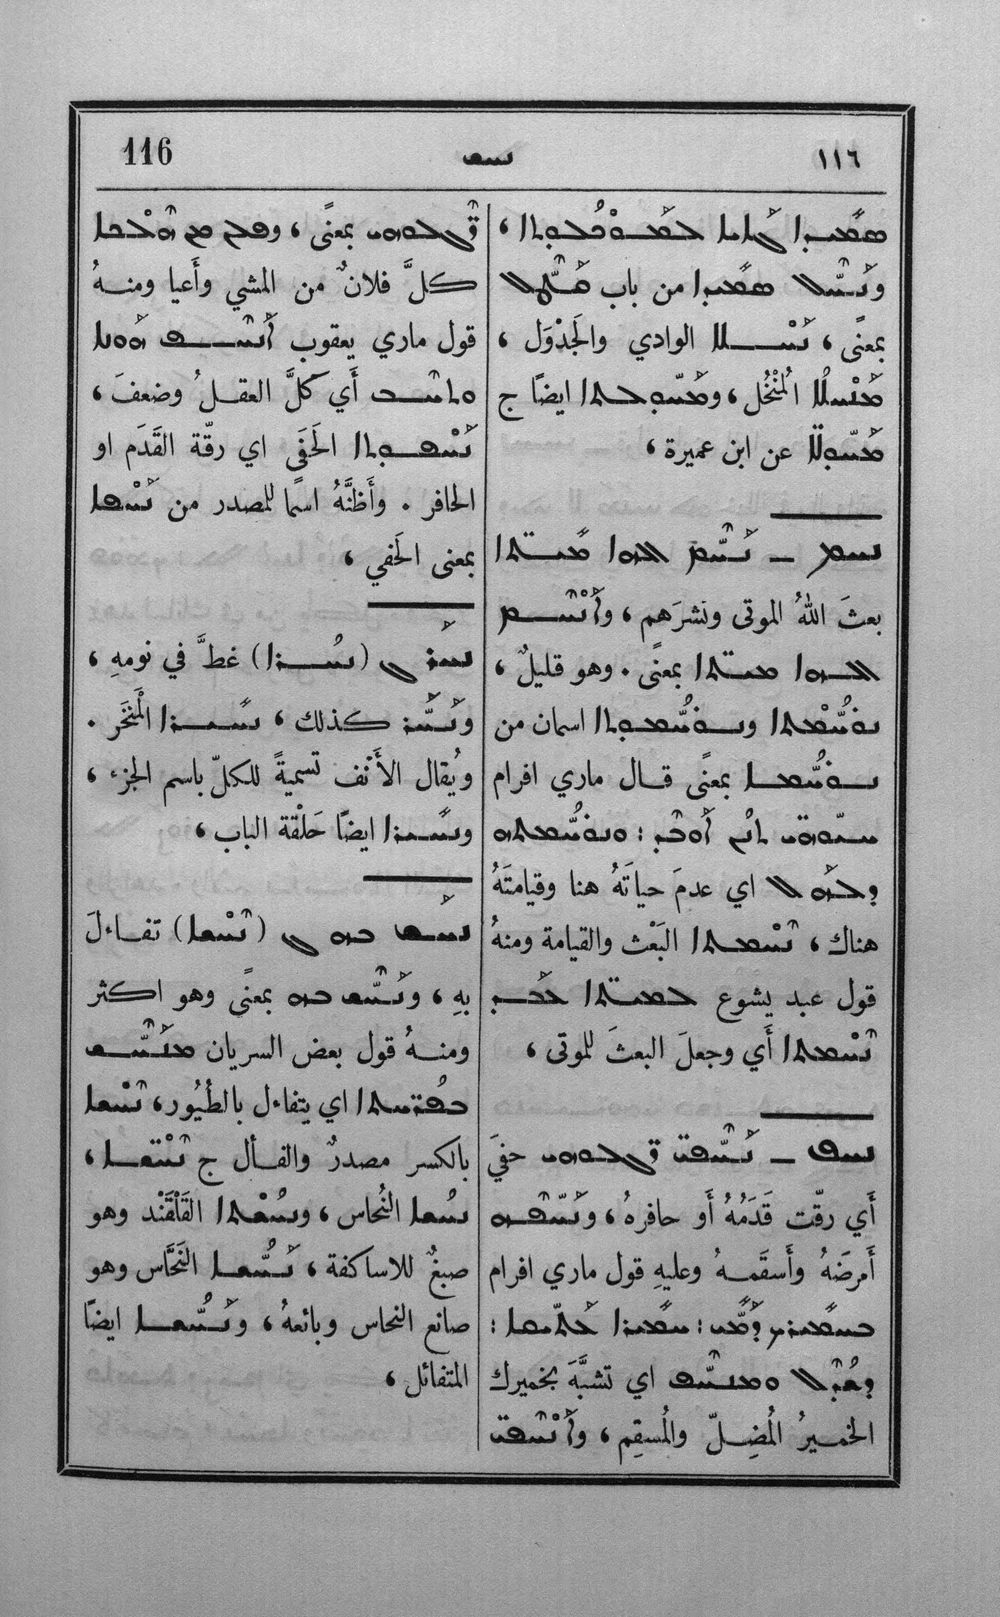 116 ١١٦
وܢܚܠ ܣܡܝܕܐ من باب
بمعنًى ، ܢܚܠܐ الوادي والجَدْوَل ،
المُنْخُل ، وܡܚܘܠܬܐ ايضًا ج
عن ابن عميرة ،
ܢܚܡ — ܢܚܡ ܐܠܗܐ ܡܝܬܐ
بعثَ اللهُ الموتى ونشرَهم ، وܐܢܚܡ
ܐܠܗܐ ܡܝܬܐ بمعنًى . وهو قليلٌ ،
ܢܘܚܡܬܐ وܢܘܚܡܘܬܐ اسمان من
ܢܘܚܡܐ بمعنًى قال ماري افرام
ܚܝܘܗܝ ܬܢܢ ܐܘܒܕ : ܘܢܘܚܡܬܗ
اي عدمَ حياتَهُ هنا وقيامتَهُ
هناك ، ܢܚܡܬܐ البَعْث والقيامة ومنهُ
قول عبد يشوع ܠܡܝܬܐ ܥܒܕ
ܢܚܡܬܐ أَي وجعلَ البعثَ للموتى ،
ܢܚܦ — ܢܚܦ̈ ܪܓܠܘܗܝ حفيَ
أَي رقّت قَدَمُهُ أَو حافرهُ ، وܢܚܦܗ
أَمرضَهُ وأَسقَمهُ وعليهِ قول ماري افرام
ܘܡܢܚܦ اي تشبَّهَ بخميرك
الخميرُ المُضِلّ والمُسقِم ، وܐܢܚܦ̈
ܪܓܠܘܗܝ بمعنًى ،
كلَّ فلانٌ من المشي وأَعيا ومنهُ
قول ماري يعقوب
أَي كَلَّ العقلُ وضعفَ ،
ܢܚܦܘܬܐ الحَفَى اي رقّة القَدَم او
الحافر . وأَظنَّهُ اسمًا للمصدر من ܢܚܦܐ
بمعنى الحَفي ،
ܢܚܪ (ܢܚܪܐ) غطَّ في نومهِ ،
وܢܚܪ كذلك ، ܢܚܝܪܐ المَنْخَر .
ويُقال الأَنْف تسميةً للكلّ باسم الجزء ،
وܢܚܝܪܐ ايضًا حَلْقة الباب ،
ܢܚܫ ܒܗ (ܢܚܫܐ) تفاءلَ
بهِ ، وܢܚܫ ܒܗ بمعنًى وهو اكثر
ومنهُ قول بعض السريان ܡܢܚܫ
ܒܦܪ̈ܚܬܐ اي يتفاءل بالطُيُور ، ܢܚܫܐ
بالكسر مصدرٌ والفأل ج ܢܚ̈ܫܐ ،
ܢܚܫܐ النُحاس ، وܢܚܫܬܐ القَلْقَنْد وهو
صبغٌ للاساكفة ، ܢܚܫܐ النَحَّاس وهو
صانع النحاس وبائعهُ ، وܢܚܫܐ ايضًا
المتفائل ،